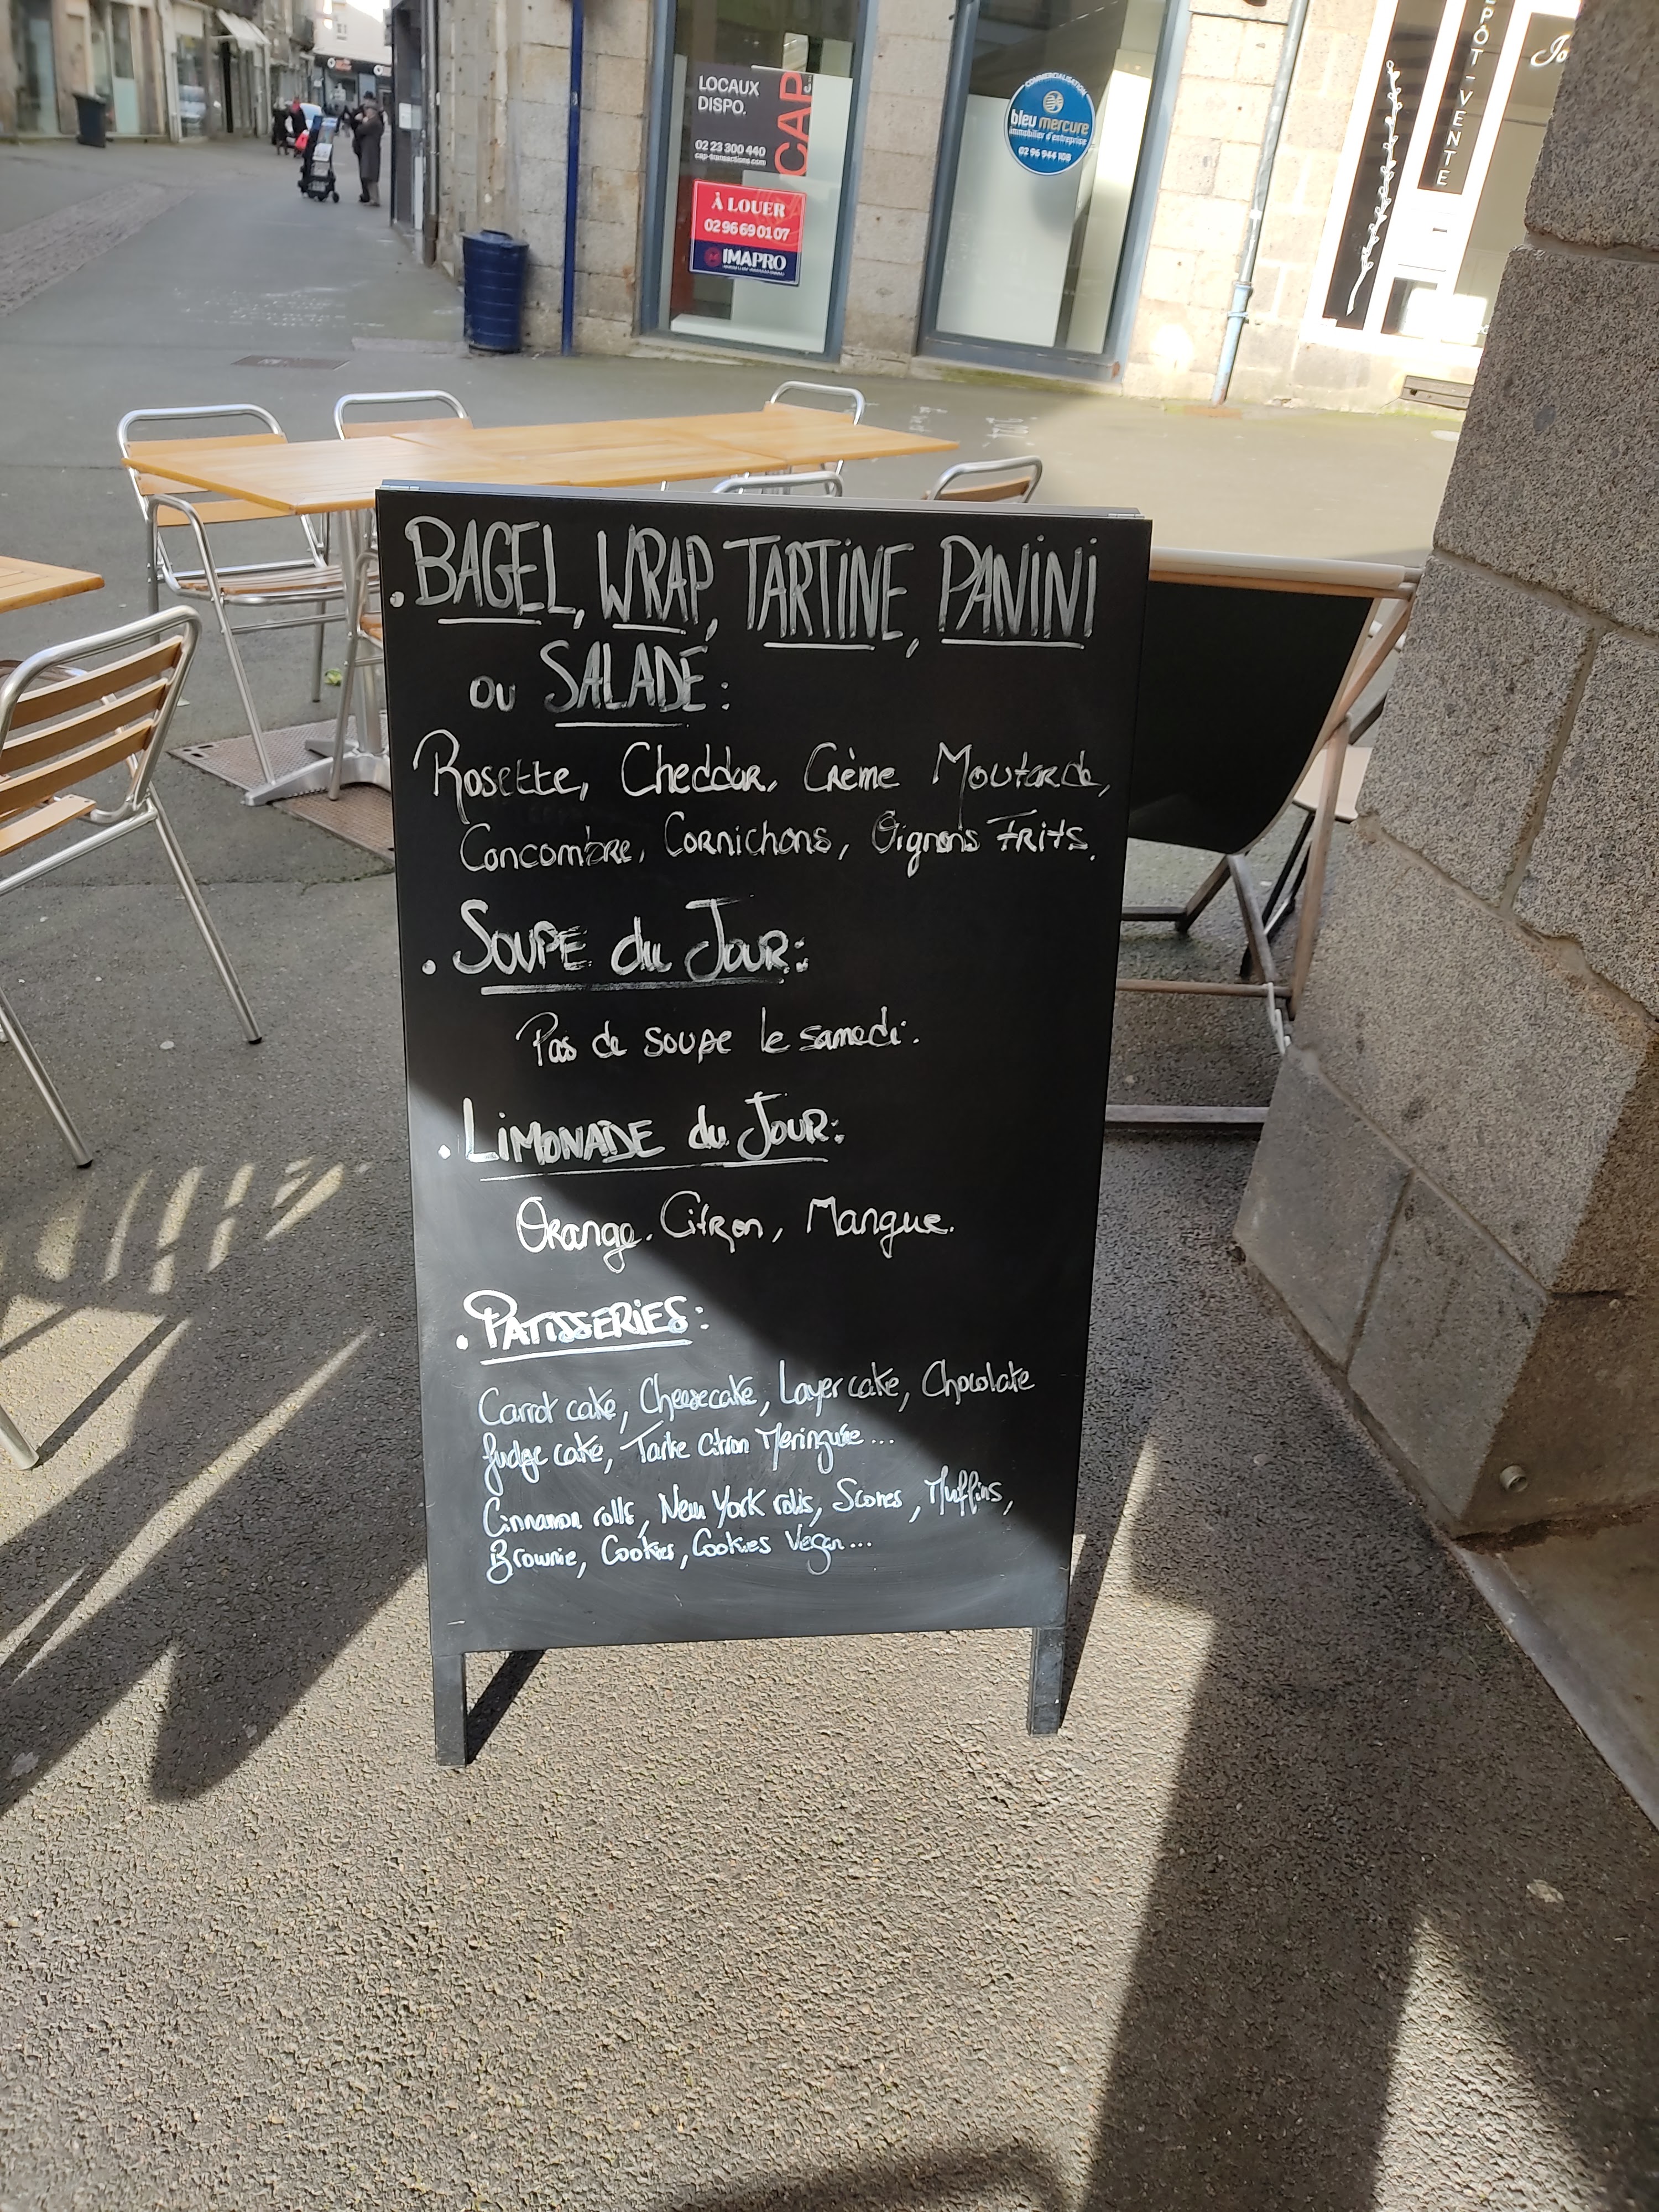 LOCAUX
DISPO.
CAP
02 23 300 440
cap-transactions.com
À LOUER
02 96 69 01 07
IMAPRO
COMMERCIALISATION
bleu mercure
immobilier d'entreprise
02 96 944 108
PÔT-VENTE
Jo
. BAGEL, WRAP, TARTINE, PANINI
ou SALADE :
Rosette, Cheddar, Crème Moutarde,
Concombre, Cornichons, Oignons Frits.
. SOUPE du JOUR :
Pas de soupe le samedi.
. LIMONADE du JOUR :
Orange, Citron, Mangue.
. PATISSERIES :
Carrot cake, Cheesecake, Layer cake, Chocolate
fudge cake, Tarte Citron Meringuée...
Cinnamon rolls, New York rolls, Scones, Muffins,
Brownie, Cookies, Cookies Vegan...